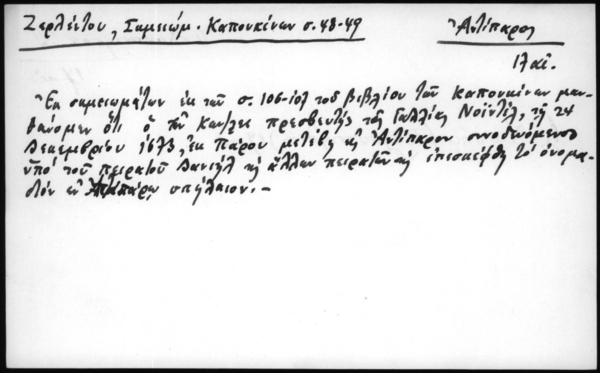 Ζερλέντου, Σημειώμ. Καπουκίνων σ. 48-49
Ἀντίπαρος
17 αἰ.
Ἐκ σημειωμάτων ἐκ τῶν σ. 106-107 τοῦ βιβλίου τῶν Καπουκίνων μαν-
θάνομεν ὅτι ὁ ἐν Κων/λει πρεσβευτὴς τῆς Γαλλίας Νοϊντέλ, τῇ 24
Δεκεμβρίου 1673, ἐκ Πάρου μετέβη εἰς Ἀντίπαρον συνοδευόμενος
ὑπὸ τοῦ πειρατοῦ Δανιὴλ καὶ ἄλλων πειρατῶν καὶ ἐπεσκέφθη τὸ ὀνομα-
στὸν ἐν Ἀντιπάρῳ σπήλαιον. –